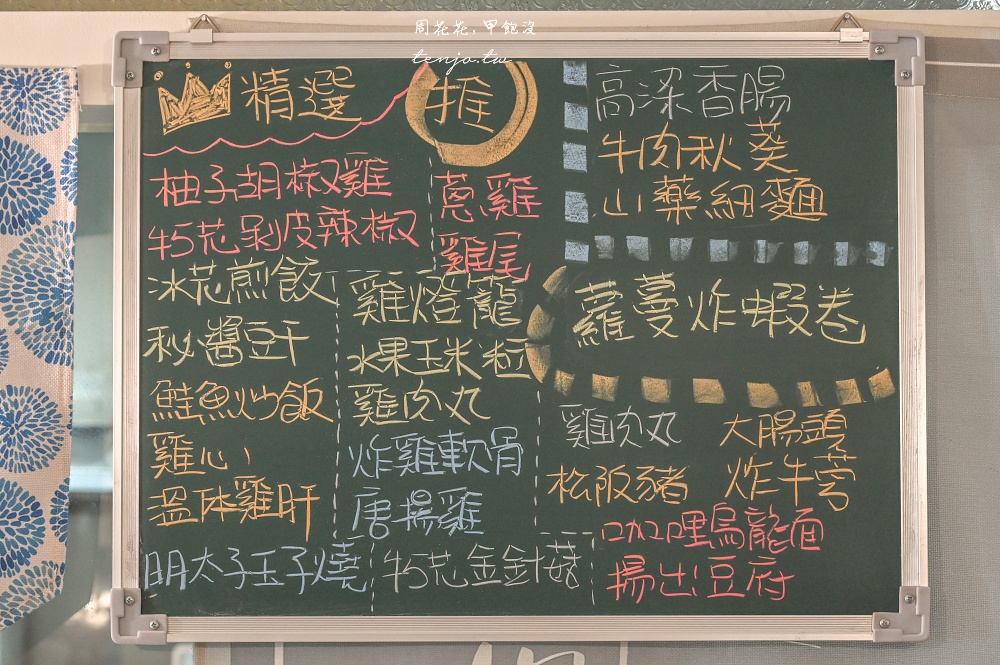 周花花,甲飽沒
tenjo.tw
精選
推
柚子胡椒雞
牛5花剝皮辣椒
冰花煎餃
秘醬豆干
鮭魚炒飯
雞心
溫体雞肝
明太子玉子燒
蔥雞
雞尾
雞燈籠
水果玉米粒
雞肉丸
炸雞軟骨
唐揚雞
牛5花金針菇
高深香腸
牛肉秋葵
山藥細麵
蘿蔓炸蝦卷
雞肉丸
大腸頭
松阪豬
炸牛蒡
咖哩烏龍面
揚出豆府